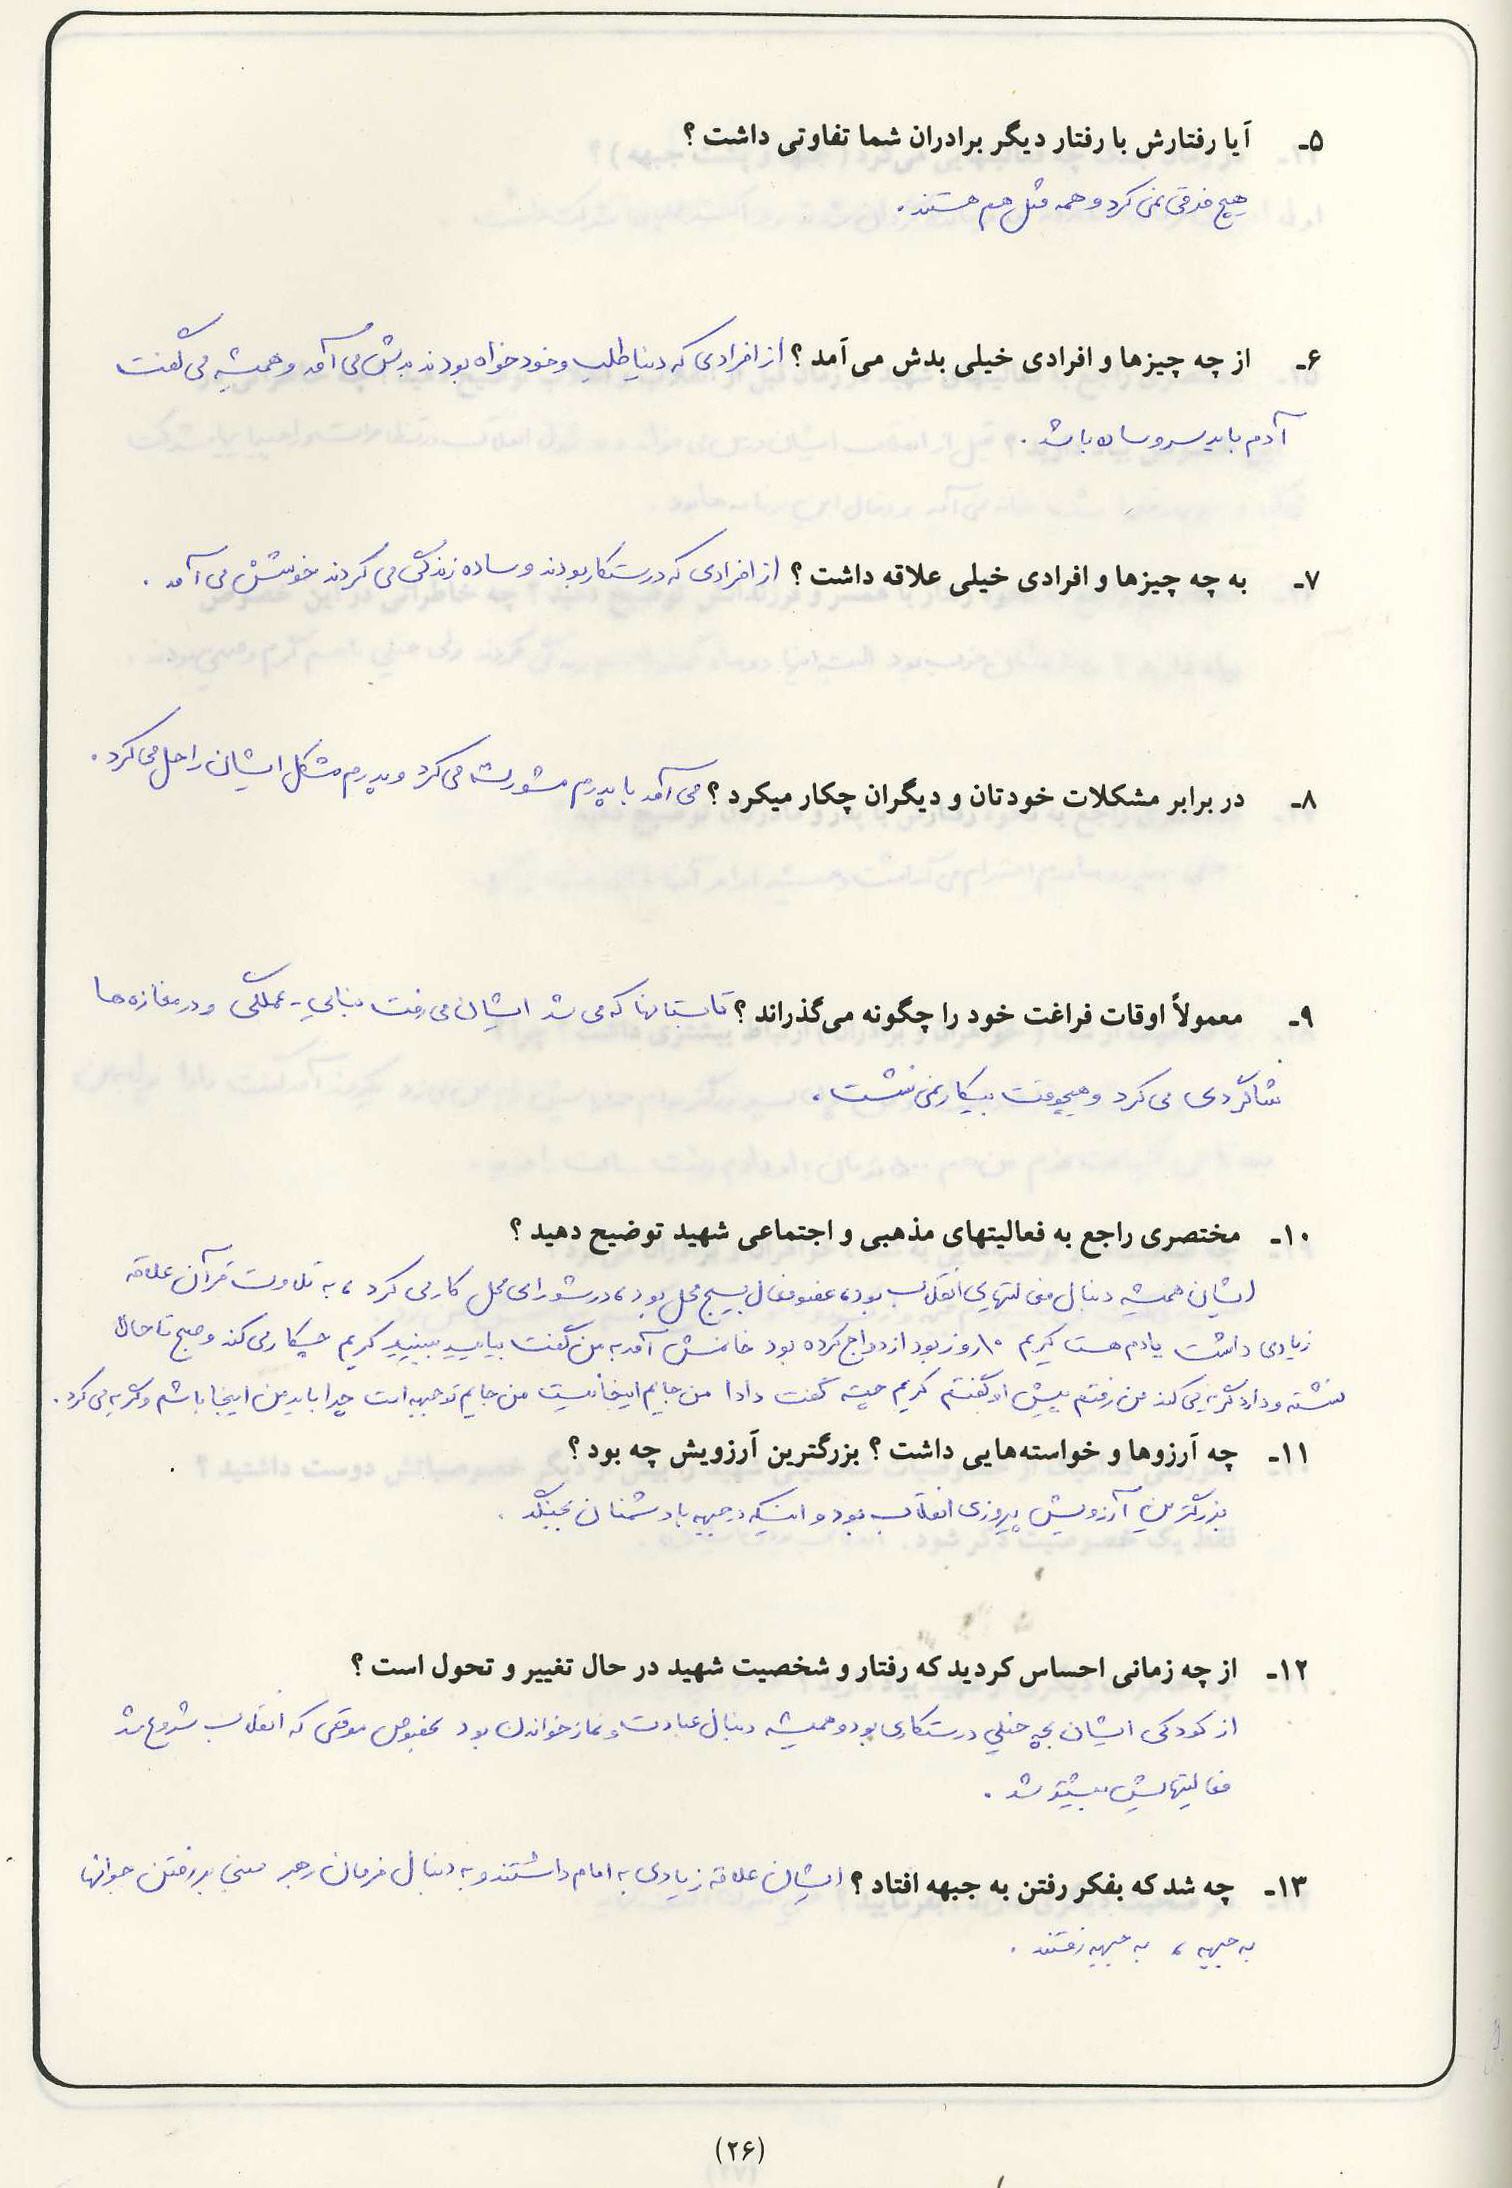 ۵ـ آیا رفتارش با رفتار دیگر برادران شما تفاوتی داشت ؟
هیچ فرقی نمی کرد و همه مثل هم هستند .
۶ـ از چه چیزها و افرادی خیلی بدش می آمد ؟ از افرادی که دنیا طلب و خودخواه بودند بدش می آمد و همیشه می گفت
آدم باید سر و ساده باشد .
۷ـ به چه چیزها و افرادی خیلی علاقه داشت ؟ از افرادی که درستکار بودند و ساده زندگی می کردند خوشش می آمد .
۸ـ در برابر مشکلات خودتان و دیگران چکار میکرد ؟ می آمد با پدرم مشورت می کرد و پدرم مشکل ایشان را حل می کرد .
۹ـ معمولاً اوقات فراغت خود را چگونه می‌گذراند ؟ تابستانها که می شد ایشان می رفت بنایی - عملگی و در مغازه ها
شاگردی می کرد و هیچوقت بیکار نمی نشست .
۱۰ـ مختصری راجع به فعالیتهای مذهبی و اجتماعی شهید توضیح دهید ؟
ایشان همیشه دنبال فعالیتهای انقلاب بود، عضو فعال بسیج محل بود، در شورای محل کار می کرد ، به تلاوت قرآن علاقه
زیادی داشت یادم هست کریم ۱۰ روز بود ازدواج کرده بود خانمش آمد به من گفت بیایید ببینید کریم چکار می کند و صبح تا حالا
نشسته و دارد گریه می کند من رفتم پیش او گفتم کریم چیته گفت دادا من جایم اینجا نیست من جایم تو جبهه است چرا باید من اینجا باشم و گریه می کرد .
۱۱ـ چه آرزوها و خواسته‌هایی داشت ؟ بزرگترین آرزویش چه بود ؟
بزرگترین آرزویش پیروزی انقلاب بود و اینکه در جبهه با دشمنان بجنگد .
۱۲ـ از چه زمانی احساس کردید که رفتار و شخصیت شهید در حال تغییر و تحول است ؟
از کودکی ایشان بچه خیلی درستکاری بود و همیشه دنبال عبادت و نماز خواندن بود بخصوص موقعی که انقلاب شروع شد
فعالیتهایش بیشتر شد .
۱۳ـ چه شد که بفکر رفتن به جبهه افتاد ؟ ایشان علاقه زیادی به امام داشتند و به دنبال فرمان رهبر مبنی بر رفتن جوانها
به جبهه ، به جبهه رفتند .
(۲۶)